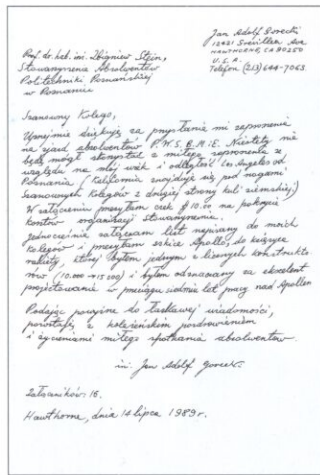 Jan Adolf Gorecki
HAWTHORNE, CA 90250
U.S.A.
Telefon (213) 644-7063.
Prof. dr. hab. inż. Zbigniew Stein,
Stowarzyszenie Absolwentów
Politechniki Poznańskiej
w Poznaniu
Szanowny Kolego,
Uprzejmie dziękuję za przysłanie mi zaproszenia
na zjazd absolwentów P.W.S.B.M.i E. Niestety nie
będę mógł skorzystać z miłego zaproszenia z
względu na mój wiek i odległość Los Angeles od
Poznania (Kalifornia znajduje się pod nogami
Szanownych Kolegów z drugiej strony kuli ziemskiej)
W załączeniu przesyłam czek $10.00 na pokrycie
kosztów organizacji Stowarzyszenia.
Jednocześnie załączam list napisany do moich
Kolegów i przesyłam szkice Apollo, do księżyca
rakiety, której byłem jednym z licznych konstrukto
rów (10.000 - 15.000) i byłem odznaczony za excelent
projektowanie w przeciągu siedmiu lat pracy nad Apollem
Podając powyższe do łaskawej wiadomości,
pozostaję z koleżeńskim pozdrowieniem
i życzeniami miłego spotkania absolwentów.
inż. Jan Adolf Gorecki.
Załączników: 16.
Hawthorne, dnia 14 lipca 1989 r.